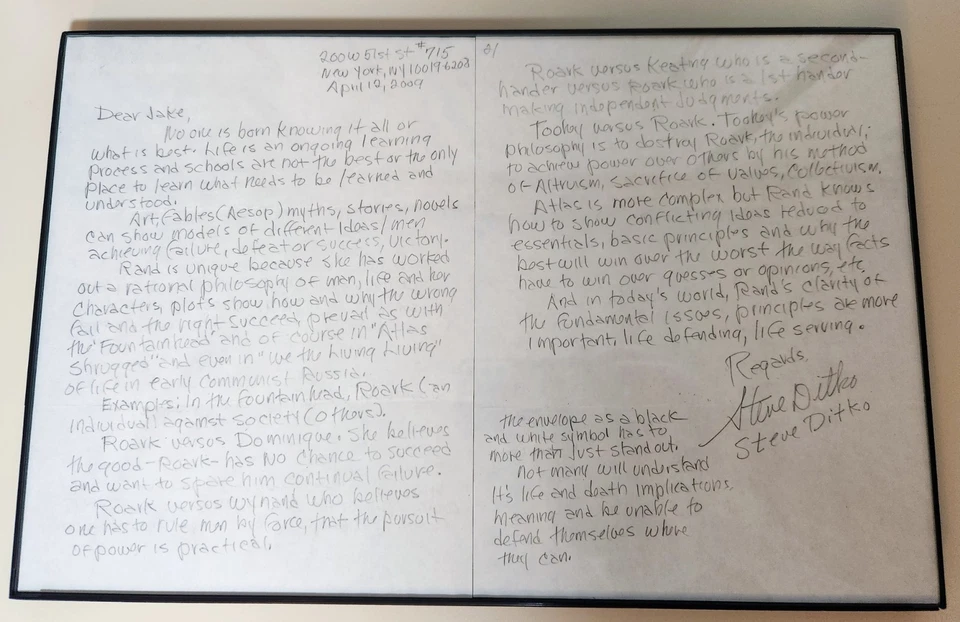 200 W 51st St #715
New York, NY 10019-6203
April 12, 2009
Dear Jake,
No one is born knowing it all or
what is best. Life is an ongoing learning
process and schools are not the best or the only
place to learn what needs to be learned and
understood.
Art, fables (Aesop) myths, stories, novels
can show models of different ideas/men
achieving failure, defeat or success, victory.
Rand is unique because she has worked
out a rational philosophy of man, life and her
characters, plots show how and why the wrong
fail and the right succeed, prevail as with
the "Fountainhead" and of course in "Atlas
Shrugged" and even in "We the Living Living"
of life in early Communist Russia.
Examples: In the Fountainhead, Roark (an
individual against society (others).
Roark versus Dominique. She believes
the good-Roark-has no chance to succeed
and want to spare him continual failure.
Roark versus Wynand who believes
one has to rule men by force, that the pursuit
of power is practical.
2/
Roark versus Keating who is a second-
hander versus Roark who is a 1st hander
making independent judgments.
Toohey versus Roark. Toohey's power
philosophy is to destroy Roark, the individual,
to achieve power over others by his method
of Altruism, sacrifice of values, collectivism.
Atlas is more complex but Rand knows
how to show conflicting ideas reduced to
essentials, basic principles and why the
best will win over the worst the way facts
have to win over guesses or opinions, etc.
And in today's world, Rand's clarity of
the fundamental issues, principles are more
important, life defending, life serving.
Regards,
Steve Ditko
Steve Ditko
the envelope as a black
and white symbol has to
more than just stand out.
Not many will understand
it's life and death implications,
meaning and be unable to
defend themselves where
they can.